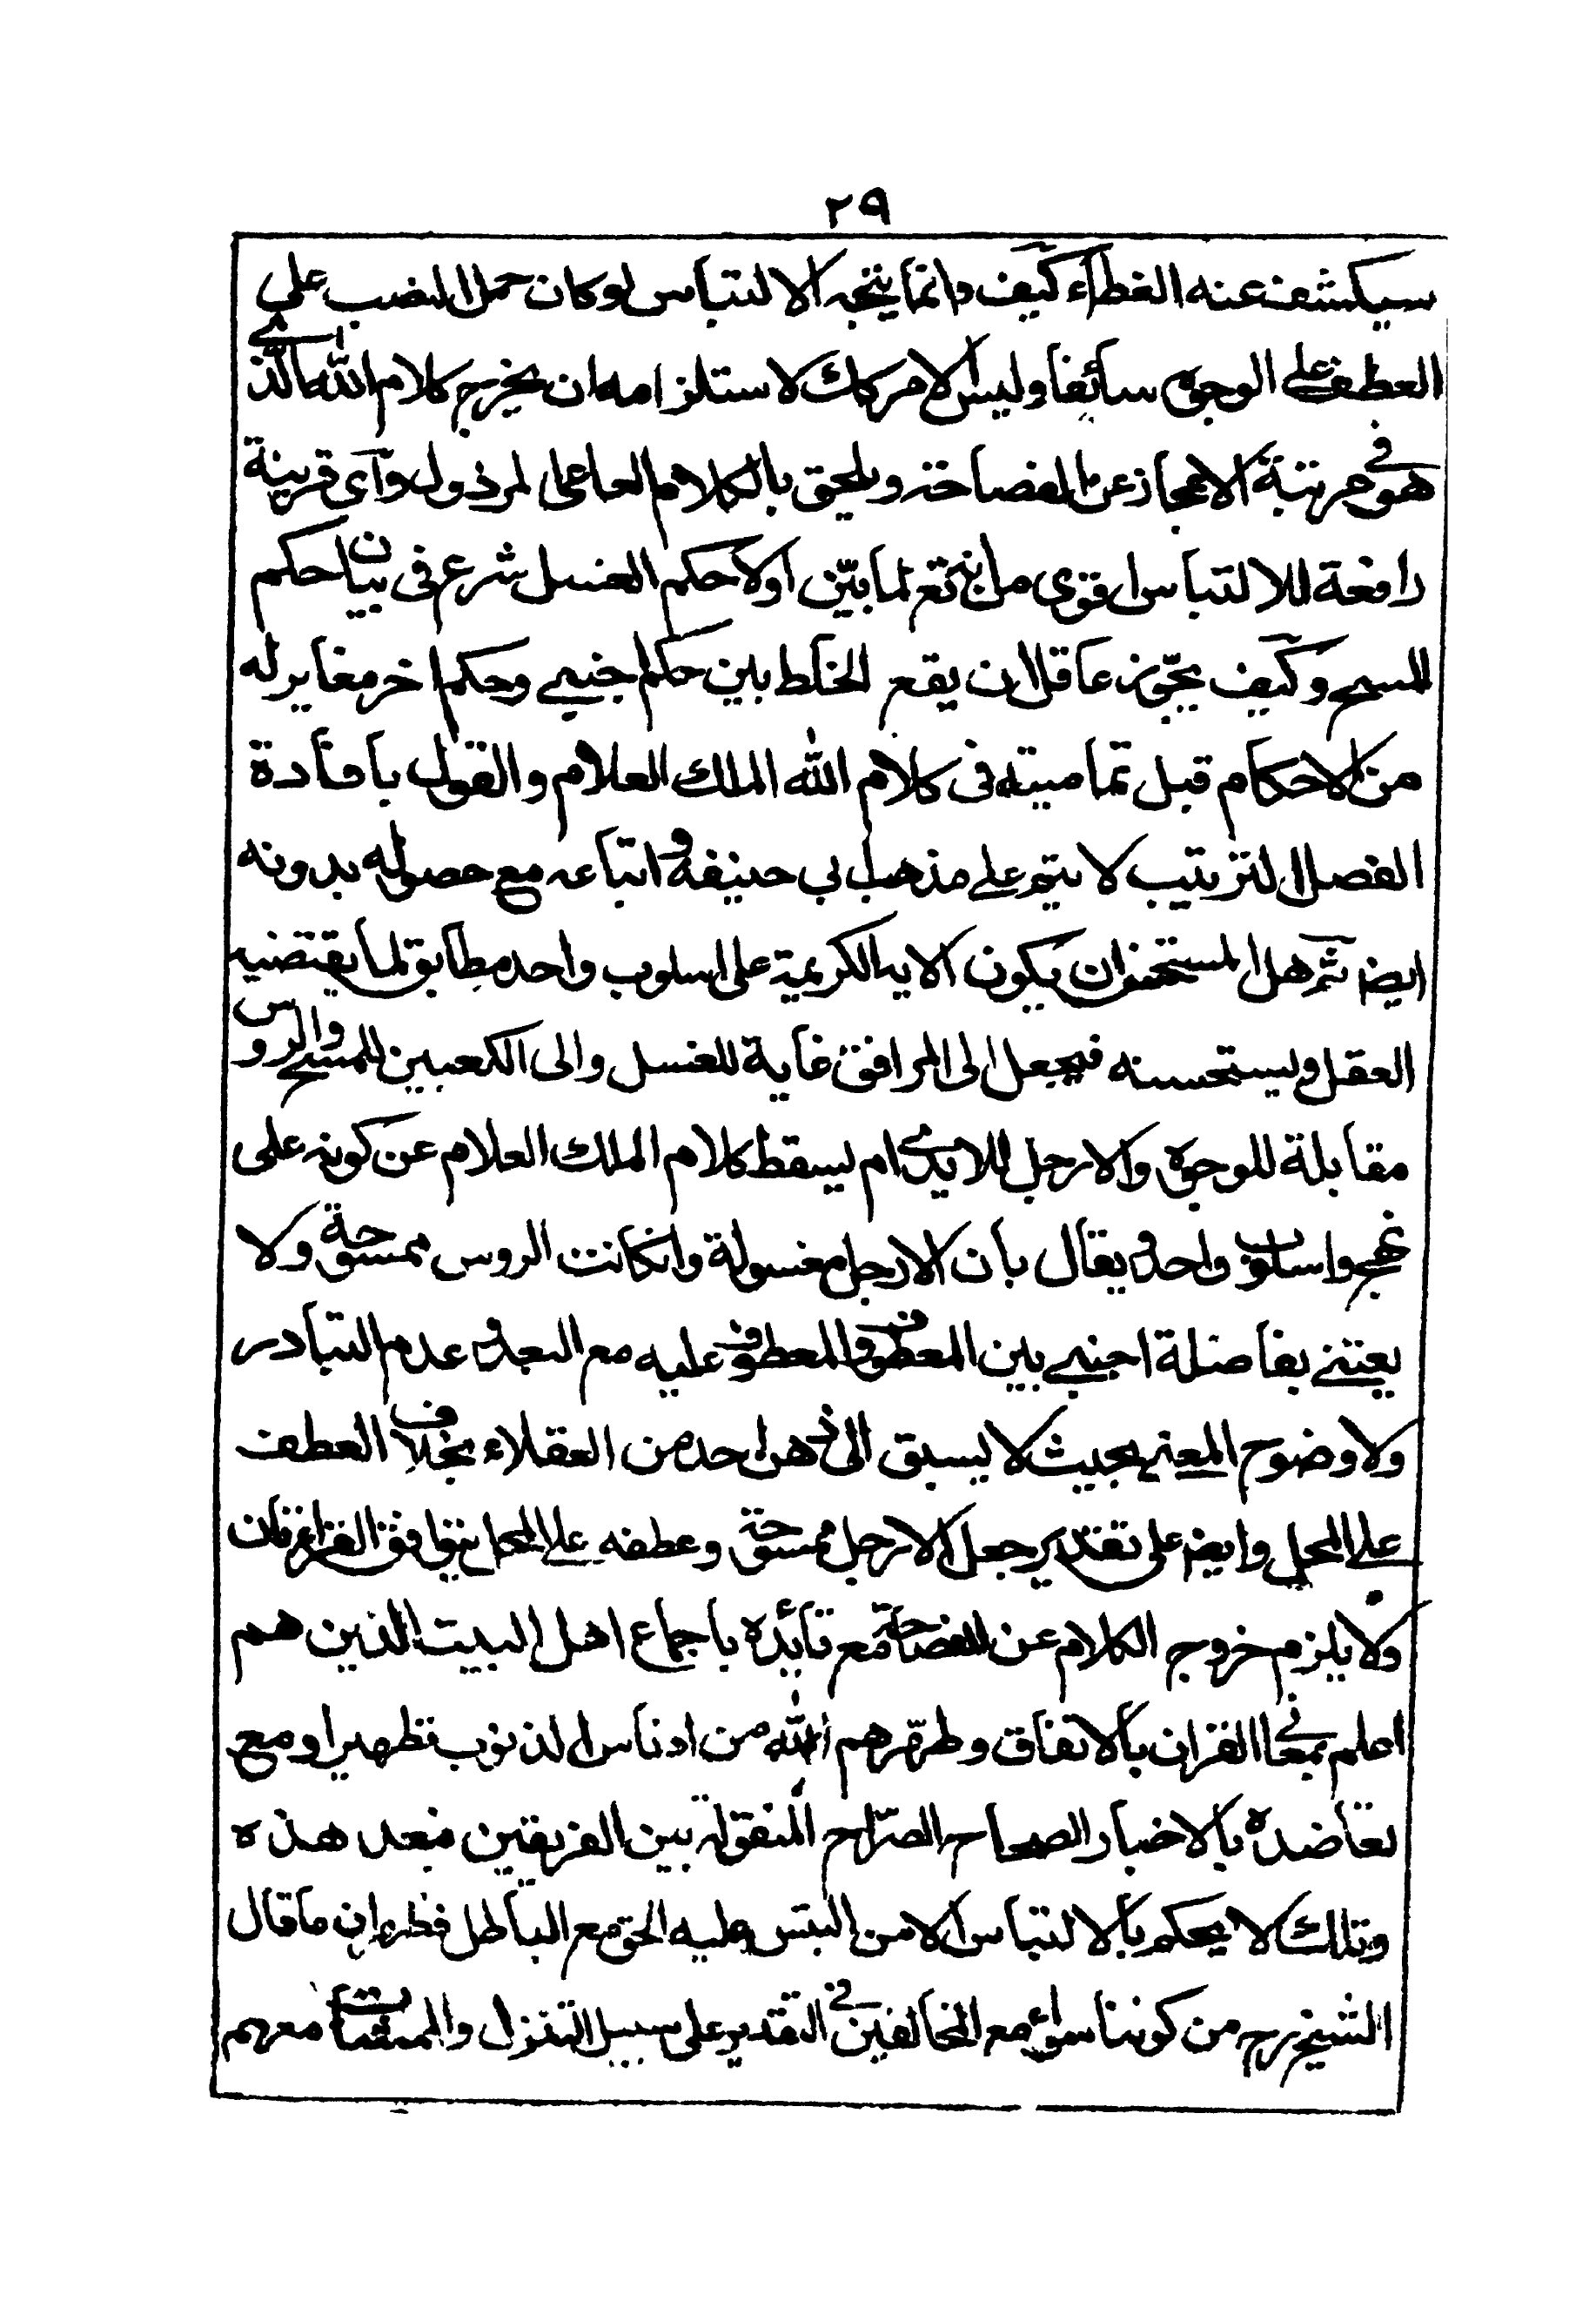 ٢٩
سيكشف عنه الغطاء كيف وانما يتجه الالتباس لو كان حمل النصب على
العطف على الوجوه سائغا وليس الامر كك لاستلزامه ان يخرج كلام الله الذي
هو في مرتبة الاعجاز عن الفصاحة ويلحق بالكلام العامى المرذول واى قرينة
رافعة للالتباس اقوى من انه تع لما بيّن اولا حكم الغسل شرع فى بيان حكم
المسح وكيف يجّوز عاقل ان يقع الخلط بين حكم اجنبي وحكم اخر مغاير له
من الاحكام قبل تماميته فى كلام الله الملك العلام والقول بافادة
الفصل الترتيب لا يتم على مذهب ابي حنيفة واتباعه مع حصوله بدونه
ايضا ثم هل المستحسن ان يكون الايه الكريمة على اسلوب واحد مطابق لما يقتضيه
العقل ويستحسنه فيجعل الى المرافق غاية للغسل والى الكعبين للمسح والروس
مقابلة للوجوه والارجل للايدي ام يسقط كلام الملك العلام عن كونه على
نهج واسلوب واحد ويقال بان الارجل مغسولة وانكانت الروس ممسوحة ولا
يعتني بفاصلة اجنبي بين المعطوف والمعطوف عليه مع البعد وعدم التبادر
ولا وضوح المعنى بحيث لا يسبق الى ذهن احد من العقلاء بخلاف العطف
على المحل وايضا على تقدير جعل الارجل ممسوحة وعطفه على المحل يتوافق القراءتان
ولا يلزم خروج الكلام عن الفصاحة مع تائده باجماع اهل البيت الذين هم
اعلم بمعاني القران بالاتفاق وطهّرهم الله من ادناس الذنوب تطهيرا ومع
تعاضده بالاخبار الصحاح الصّراح المنقولة بين الفريقين فبعد هذه
وتلك لا يحكم بالالتباس الا من التبس عليه الحق مع الباطل فظهر ان ما قال
الشيخ رح من كوننا سواء مع المخالفين في التقدير على سبيل التنزل والممشات معهم